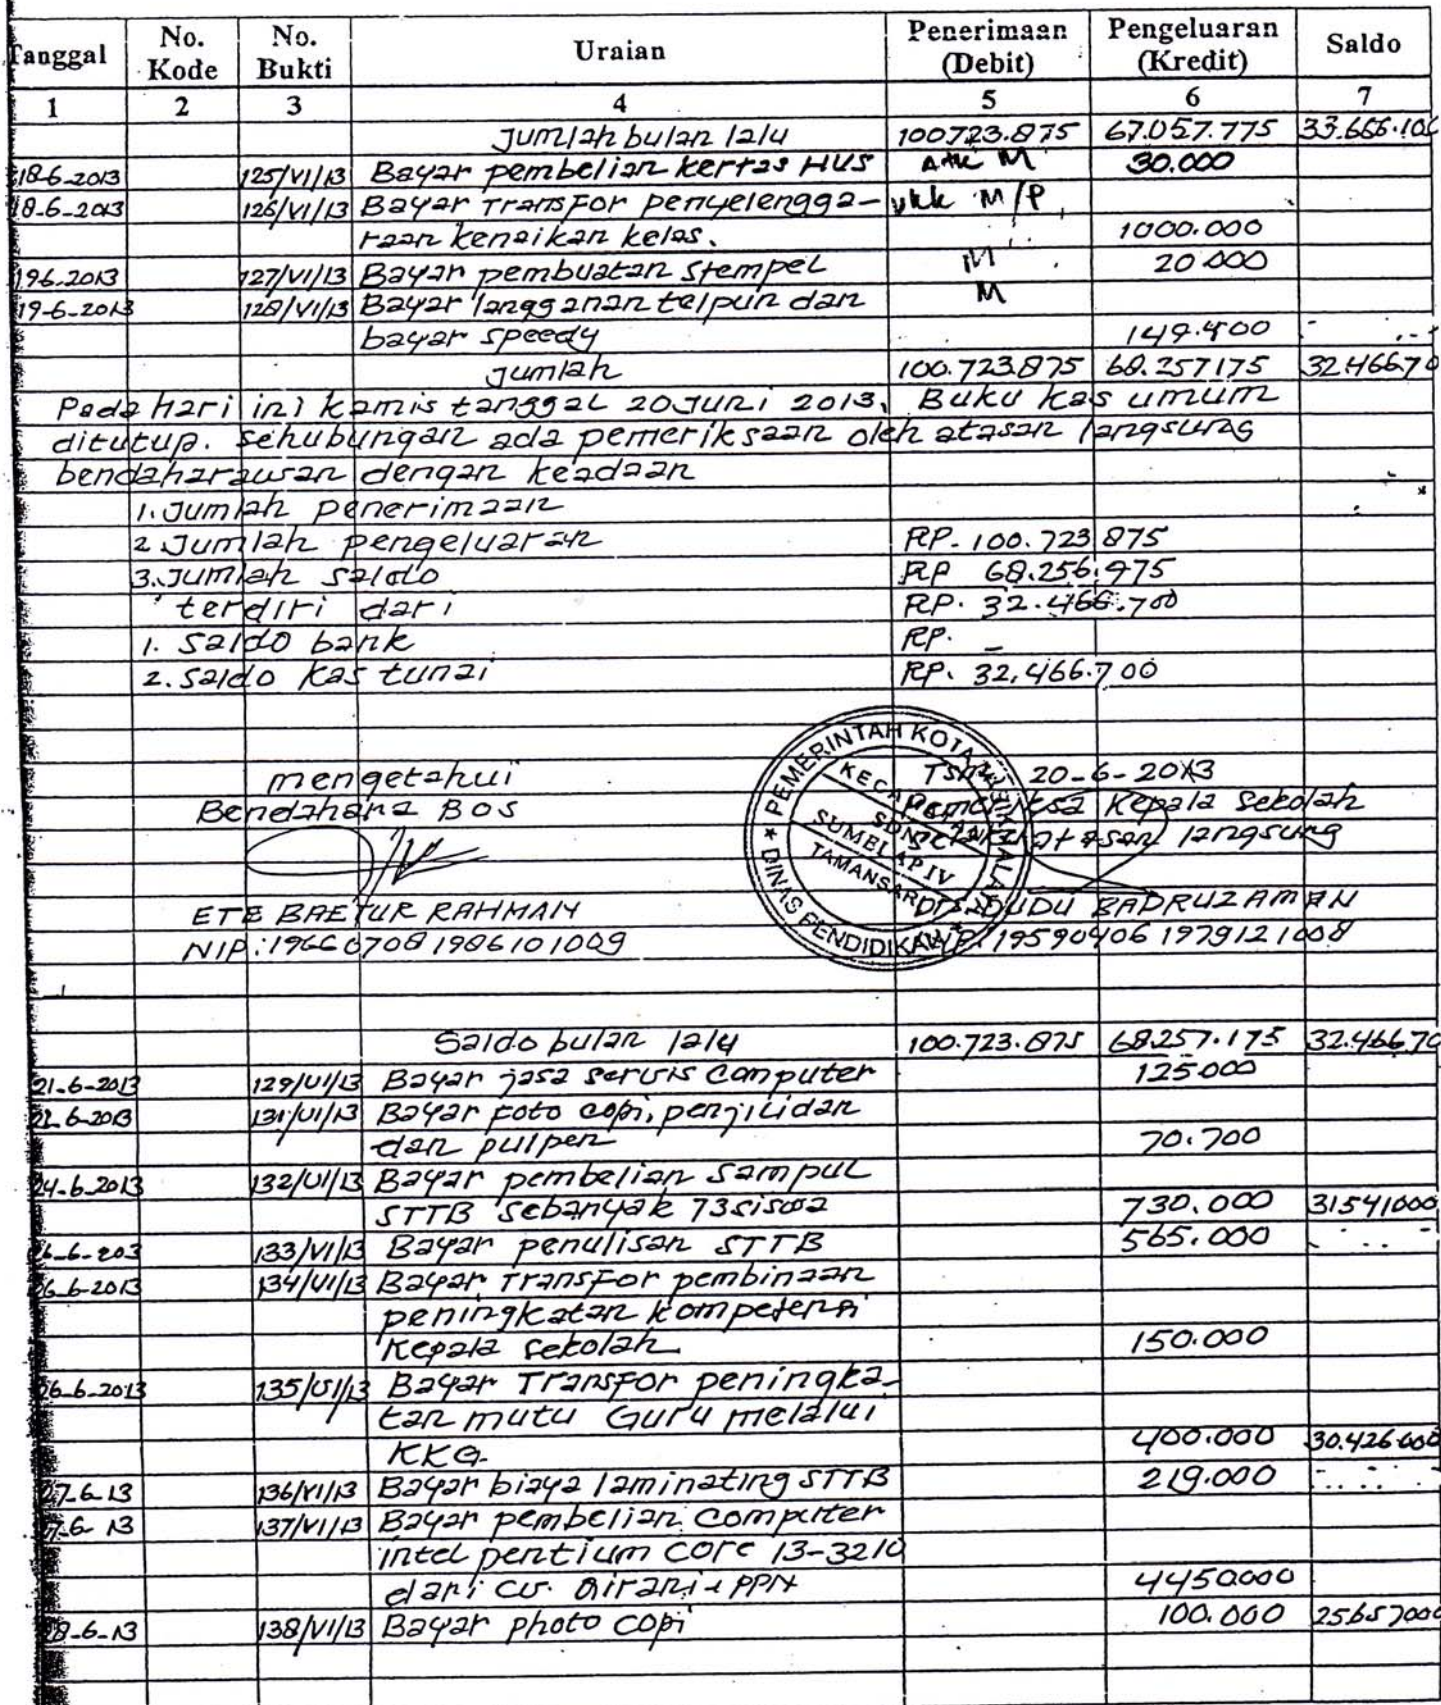 Tanggal No. Kode No. Bukti Uraian Penerimaan (Debit) Pengeluaran (Kredit) Saldo
1 2 3 4 5 6 7
Jumlah bulan lalu 100723.875 67.057.775 33.666.100
18-6-2013 125/VI/13 Bayar pembelian kertas HUS Atk M 30.000
18-6-2013 126/VI/13 Bayar Transfor penyelengga- ukk M/P
raan kenaikan kelas. 1000.000
19.6.2013 127/VI/13 Bayar pembuatan stempel M 20.000
19-6-2013 128/VI/13 Bayar langganan telpun dan M
bayar speedy 149.400
Jumlah 100.723.875 68.257175 32.466.70
Pada hari ini kamis tanggal 20 Juni 2013, Buku kas umum
ditutup. sehubungan ada pemeriksaan oleh atasan langsung
bendaharawan dengan keadaan
1. Jumlah penerimaan
2. Jumlah pengeluaran RP. 100.723.875
3. Jumlah saldo RP 68.256.975
terdiri dari RP. 32.466.700
1. Saldo bank RP. -
2. Saldo kas tunai RP. 32,466.700
PEMERINTAH KOTA TASIKMALAYA
DINAS PENDIDIKAN
KECAMATAN
SDN
SUMELAP IV
TAMANSARI
mengetahui TSM 20-6-2013
Bendahara BOS Pemeriksa Kepala Sekolah
atasan langsung
ETE BAETUR RAHMAN DUDU BADRUZAMAN
NIP: 19660708 198610 1009 NIP. 19590406 197912 1008
Saldo bulan lalu 100.723.875 68.257.175 32.466.70
21-6-2013 129/VI/13 Bayar jasa servis Computer 125.000
22.6-2013 131/VI/13 Bayar foto copi, penjilidan
dan pulpen 70.700
24-6-2013 132/VI/13 Bayar pembelian Sampul
STTB Sebanyak 73 siswa 730.000 31541000
26-6-203 133/VI/13 Bayar penulisan STTB 565.000
26-6-2013 134/VI/13 Bayar Transfor pembinaan
peningkatan kompetensi
Kepala sekolah. 150.000
26-6-2013 135/VI/13 Bayar Transfor peningka-
tan mutu Guru melalui
KKG. 400.000 30.426.000
27-6-13 136/VI/13 Bayar biaya laminating STTB 219.000
27-6-13 137/VI/13 Bayar pembelian Computer
intel pentium core 13-3210
dari CV. PPN 4450000
28-6-13 138/VI/13 Bayar photo copi 100.000 25657000